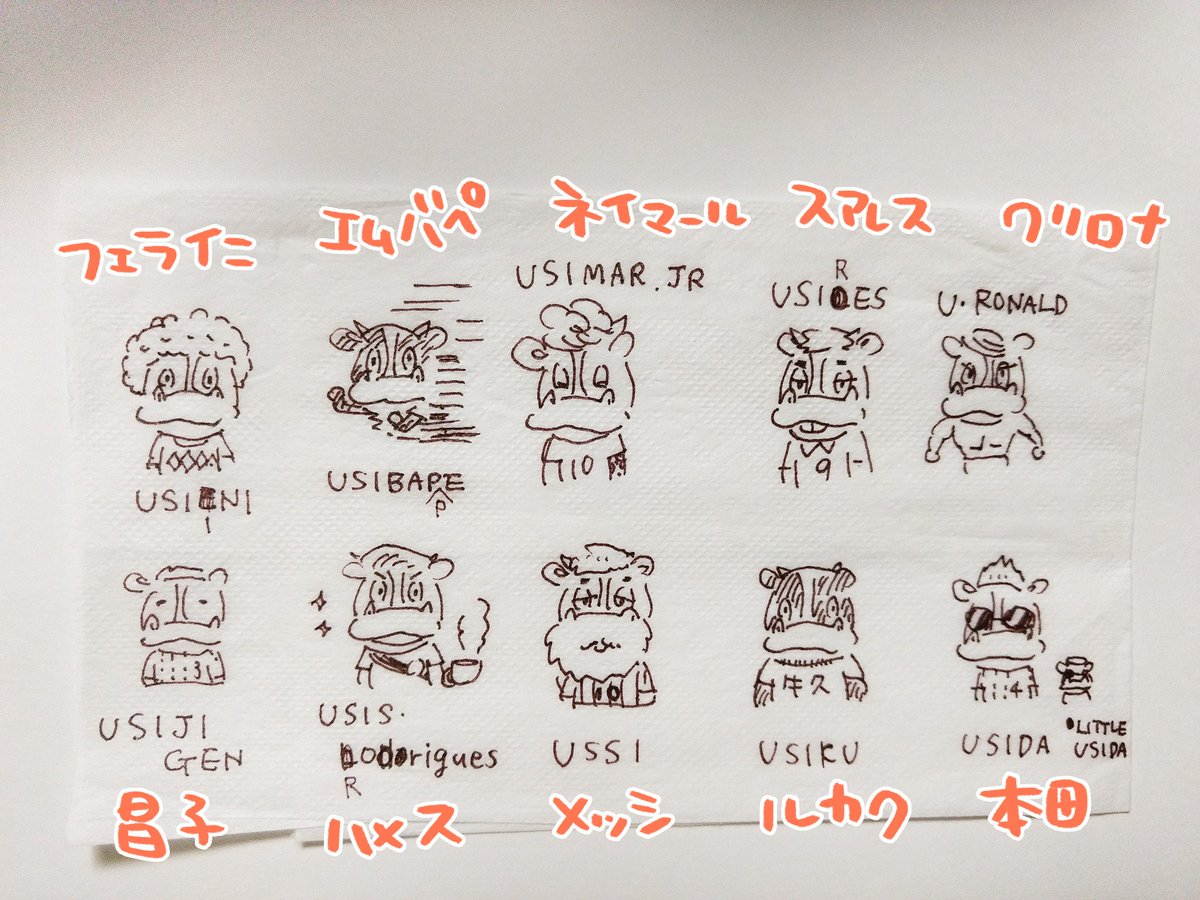 フェライニ
エムバペ
ネイマール
スアレス
クリロナ
USIMAR.JR
R
USI ES
U.RONALD
10
9
USI NI
I
USIBAPE
P
3
10
牛久
4
USIJI
GEN
USIS.
odorigues
R
USSI
USIKU
USIDA
LITTLE
USIDA
昌子
ハメス
メッシ
ルカク
本田